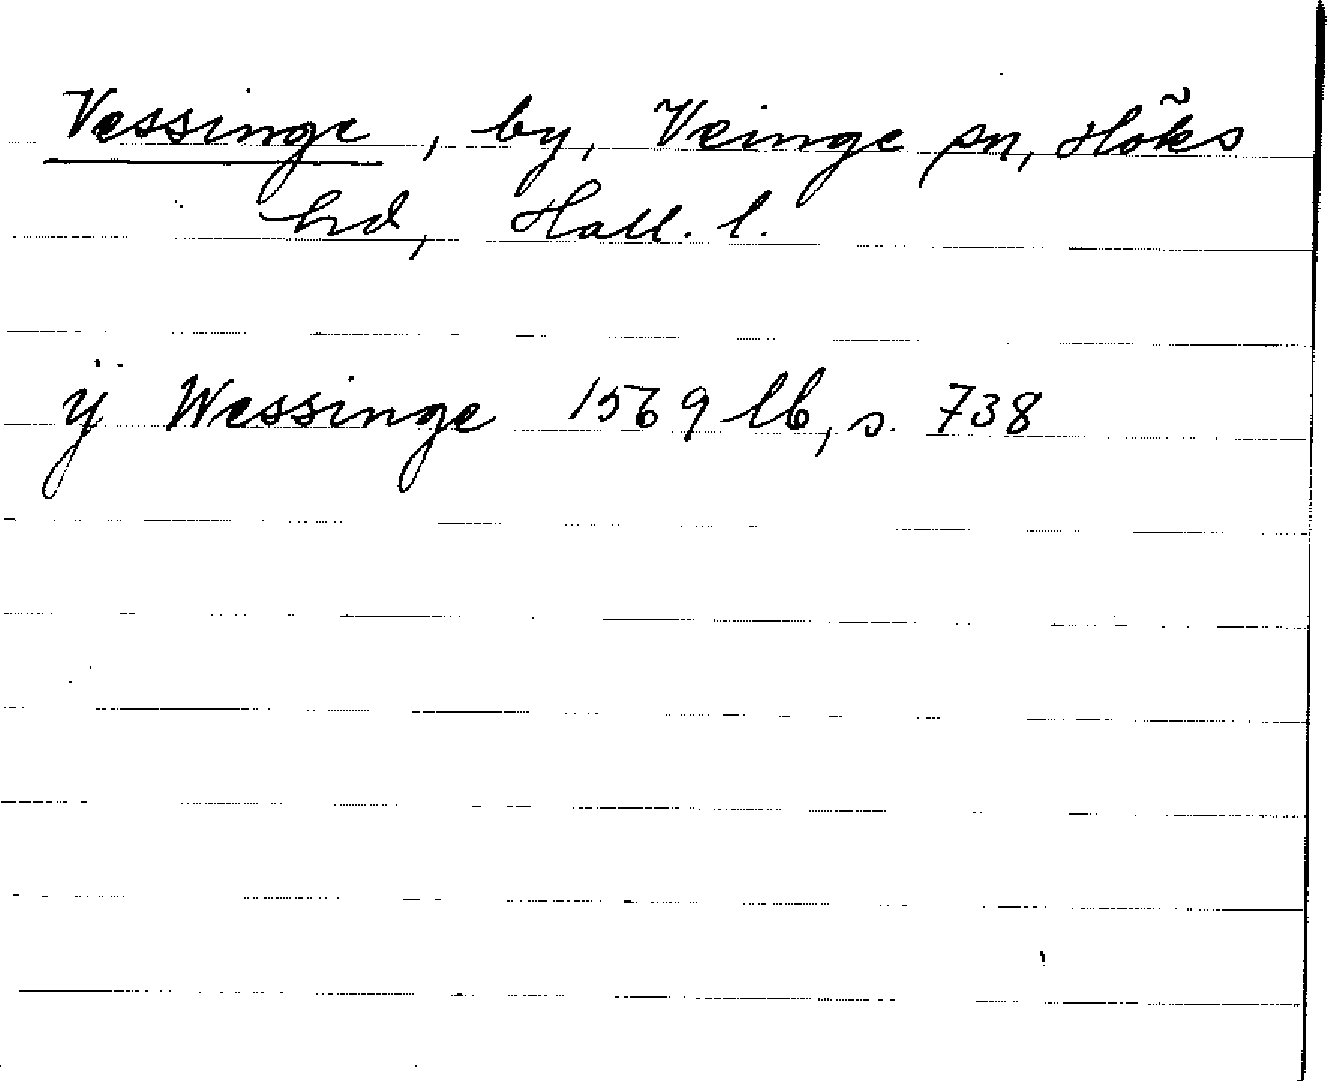 Vessinge, by, Veinge sn, Höks
hd, Hall. l.
ÿ Wessinge 1569 lb, s. 738